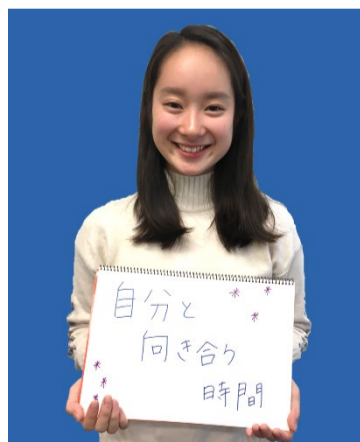 自分と
向き合う
時間